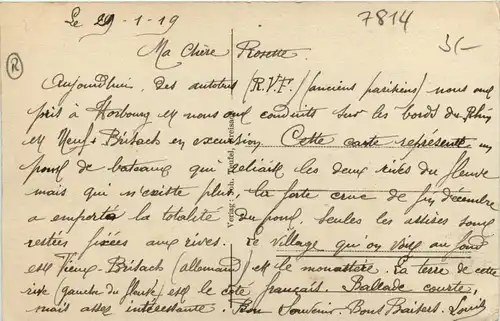 Le 29-1-19
7814
3/-
R
Ma Chère Rosette
Aujourd'hui, des autobus (R.V.F.) (anciens parisiens) nous ont
pris à Horbourg et nous ont conduits sur les bords du Rhin
et Neuf-Brisach en excursion. Cette carte représente un
pont de bateaux qui reliait les deux rives du fleuve
mais qui n'existe plus, la forte crue de fin décembre
a emporté la totalité du pont. Seules les assises sont
restées fixées aux rives. Le village qu'on voit au fond
est Vieux-Brisach (allemand) et le monastère. La terre de cette
rive (gauche du fleuve) est le côté français. Ballade courte,
mais assez intéressante. Bon Souvenir. Bons Baisers.
Verlag Joh. Breisach